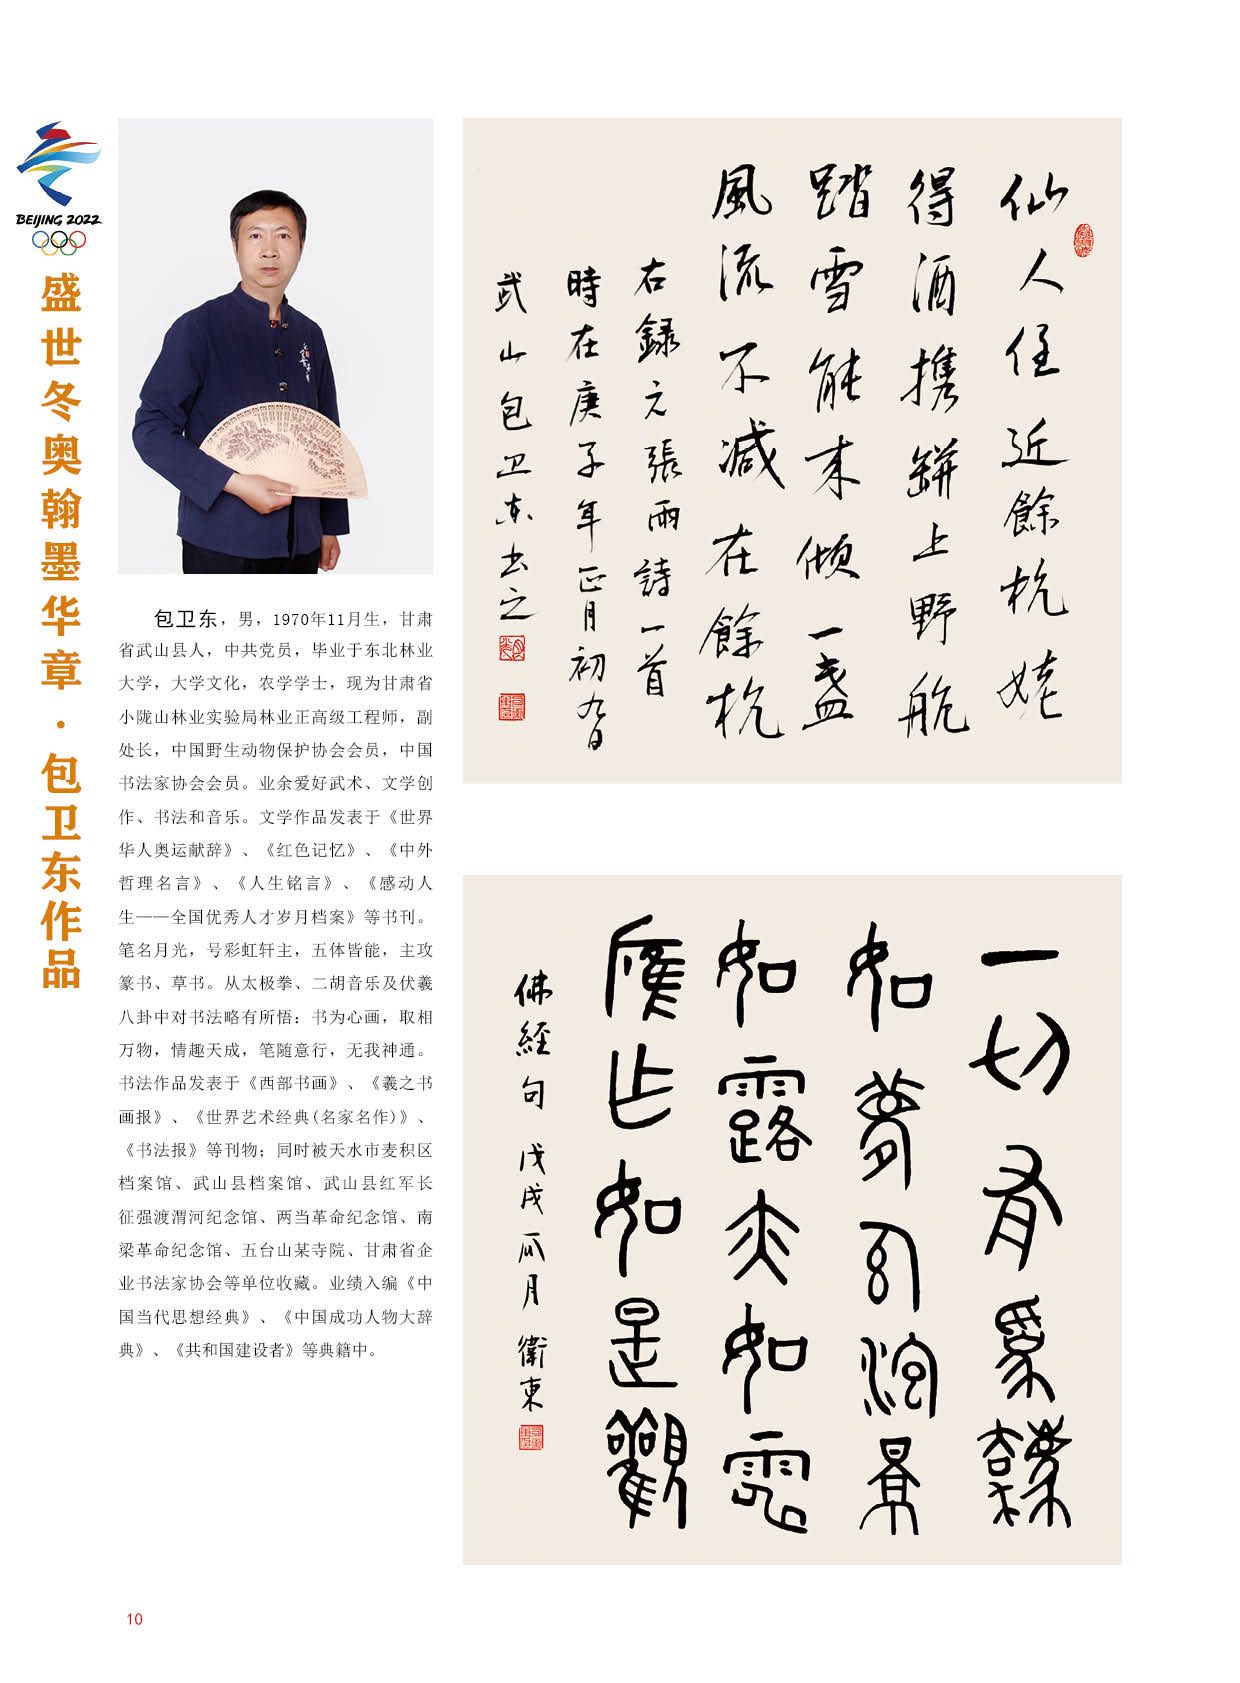 BEIJING 2022
盛世冬奥翰墨华章·包卫东作品
包卫东，男，1970年11月生，甘肃
省武山县人，中共党员，毕业于东北林业
大学，大学文化，农学学士，现为甘肃省
小陇山林业实验局林业正高级工程师，副
处长，中国野生动物保护协会会员，中国
书法家协会会员。业余爱好武术、文学创
作、书法和音乐。文学作品发表于《世界
华人奥运献辞》、《红色记忆》、《中外
哲理名言》、《人生铭言》、《感动人
生——全国优秀人才岁月档案》等书刊。
笔名月光，号彩虹轩主，五体皆能，主攻
篆书、草书。从太极拳、二胡音乐及伏羲
八卦中对书法略有所悟：书为心画，取相
万物，情趣天成，笔随意行，无我神通。
书法作品发表于《西部书画》、《羲之书
画报》、《世界艺术经典(名家名作)》、
《书法报》等刊物；同时被天水市麦积区
档案馆、武山县档案馆、武山县红军长
征强渡渭河纪念馆、两当革命纪念馆、南
梁革命纪念馆、五台山某寺院、甘肃省企
业书法家协会等单位收藏。业绩入编《中
国当代思想经典》、《中国成功人物大辞
典》、《共和国建设者》等典籍中。
仙人住近餘杭姥
得酒携缾上野航
踏雪能来倾一盏
風流不減在餘杭
右録元張雨詩一首
時在庚子年正月初九日
武山包卫东书之
一切有爲灋
如夢幻泡影
如露亦如電
應作如是觀
佛經句 戊戌瓜月 衛東
10